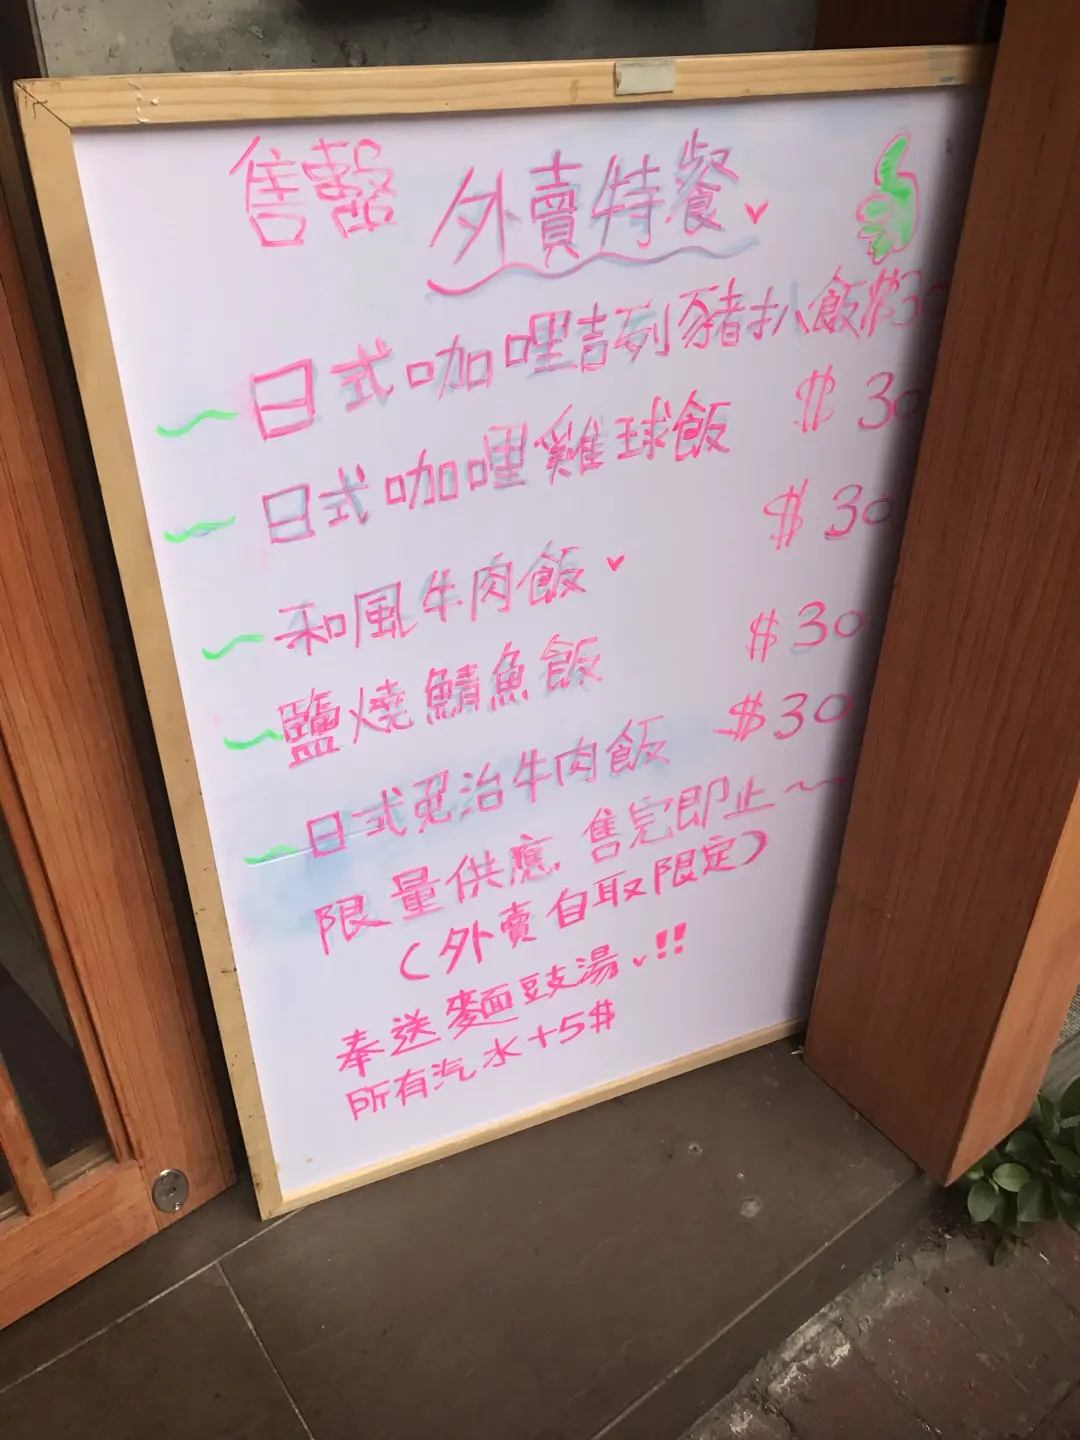 售罄 外賣特餐
日式咖哩吉列豬扒飯 $30
日式咖哩雞球飯 $30
和風牛肉飯 $30
鹽燒鯖魚飯 $30
日式免治牛肉飯 $30
限量供應, 售完即止~~
(外賣自取限定)
奉送麵豉湯!!
所有汽水+5$